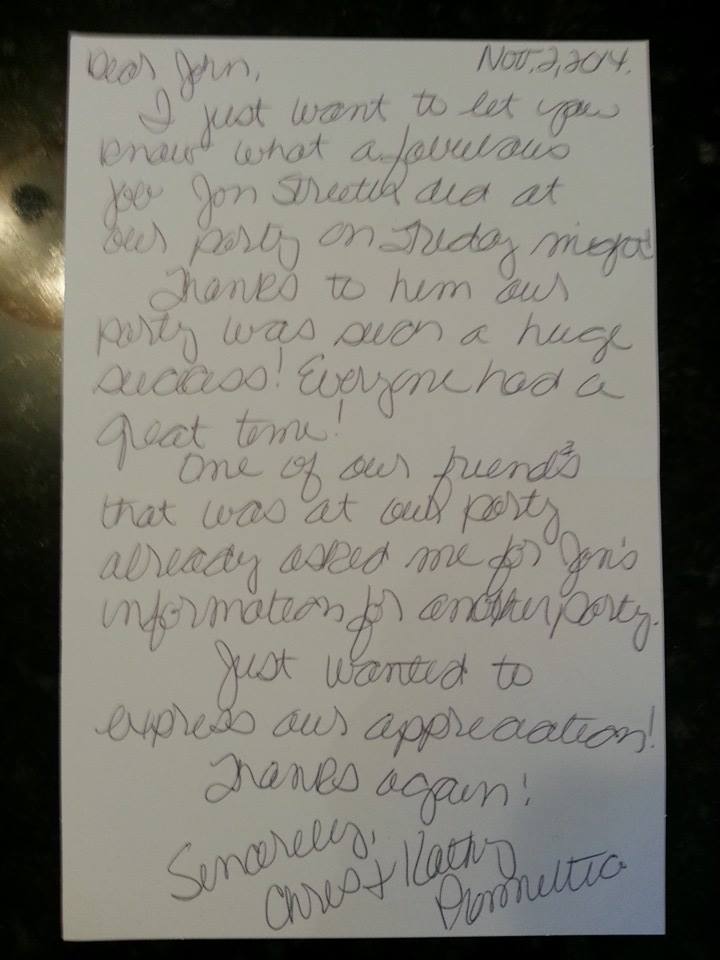 Dear John, Nov. 2, 2014.
I just want to let you
know what a fabulous
job Jon Streeter did at
our party on Friday night!
Thanks to him our
party was such a huge
success! Everyone had a
great time!
One of our friends
that was at our party
already asked me for Jon's
information for another party.
Just wanted to
express our appreciation!
Thanks again!
Sincerely,
Chris & Kathy